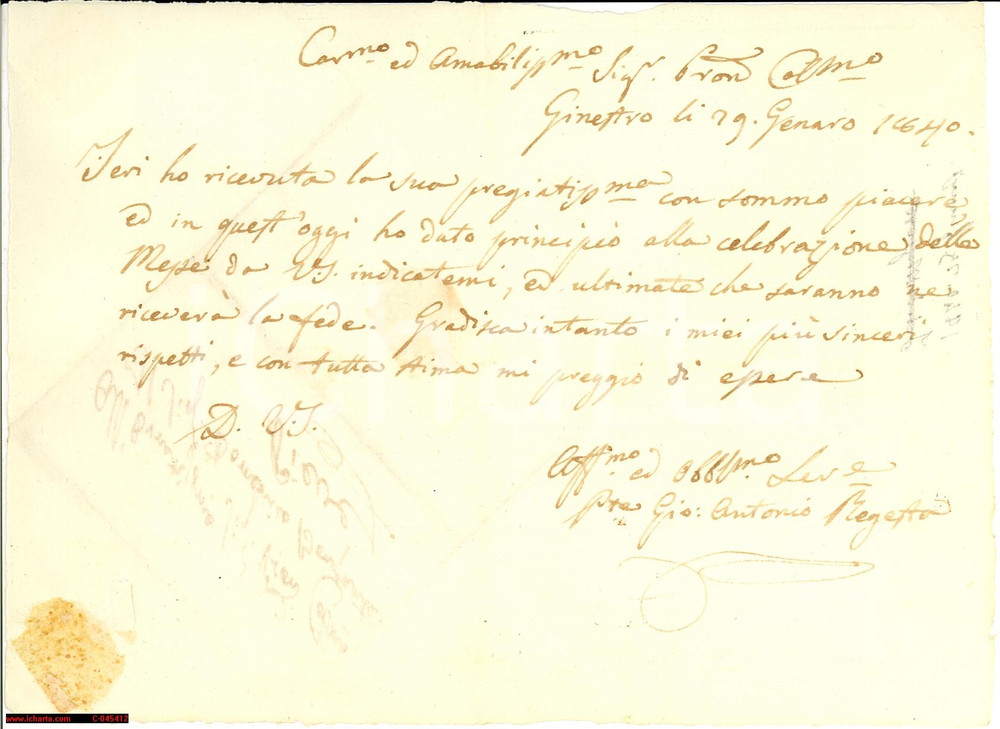 Carmo ed Amabilissmo Sigr. Pron Colmo
Ginestro li 29. Genaro 1840.
Ieri ho ricevuta la sua pregiatissma con sommo piacere
ed in quest'oggi ho dato principio alla celebrazione delle
Messe da V.S. indicatemi, ed ultimate che saranno ne
riceverà la fede. Gradisca intanto i miei più sinceri
rispetti, e con tutta stima mi preggio di essere
D. V.S.
Affmo ed Obblmo Serve
Pte Gio: Antonio Regesta
www.icharta.com C-045412